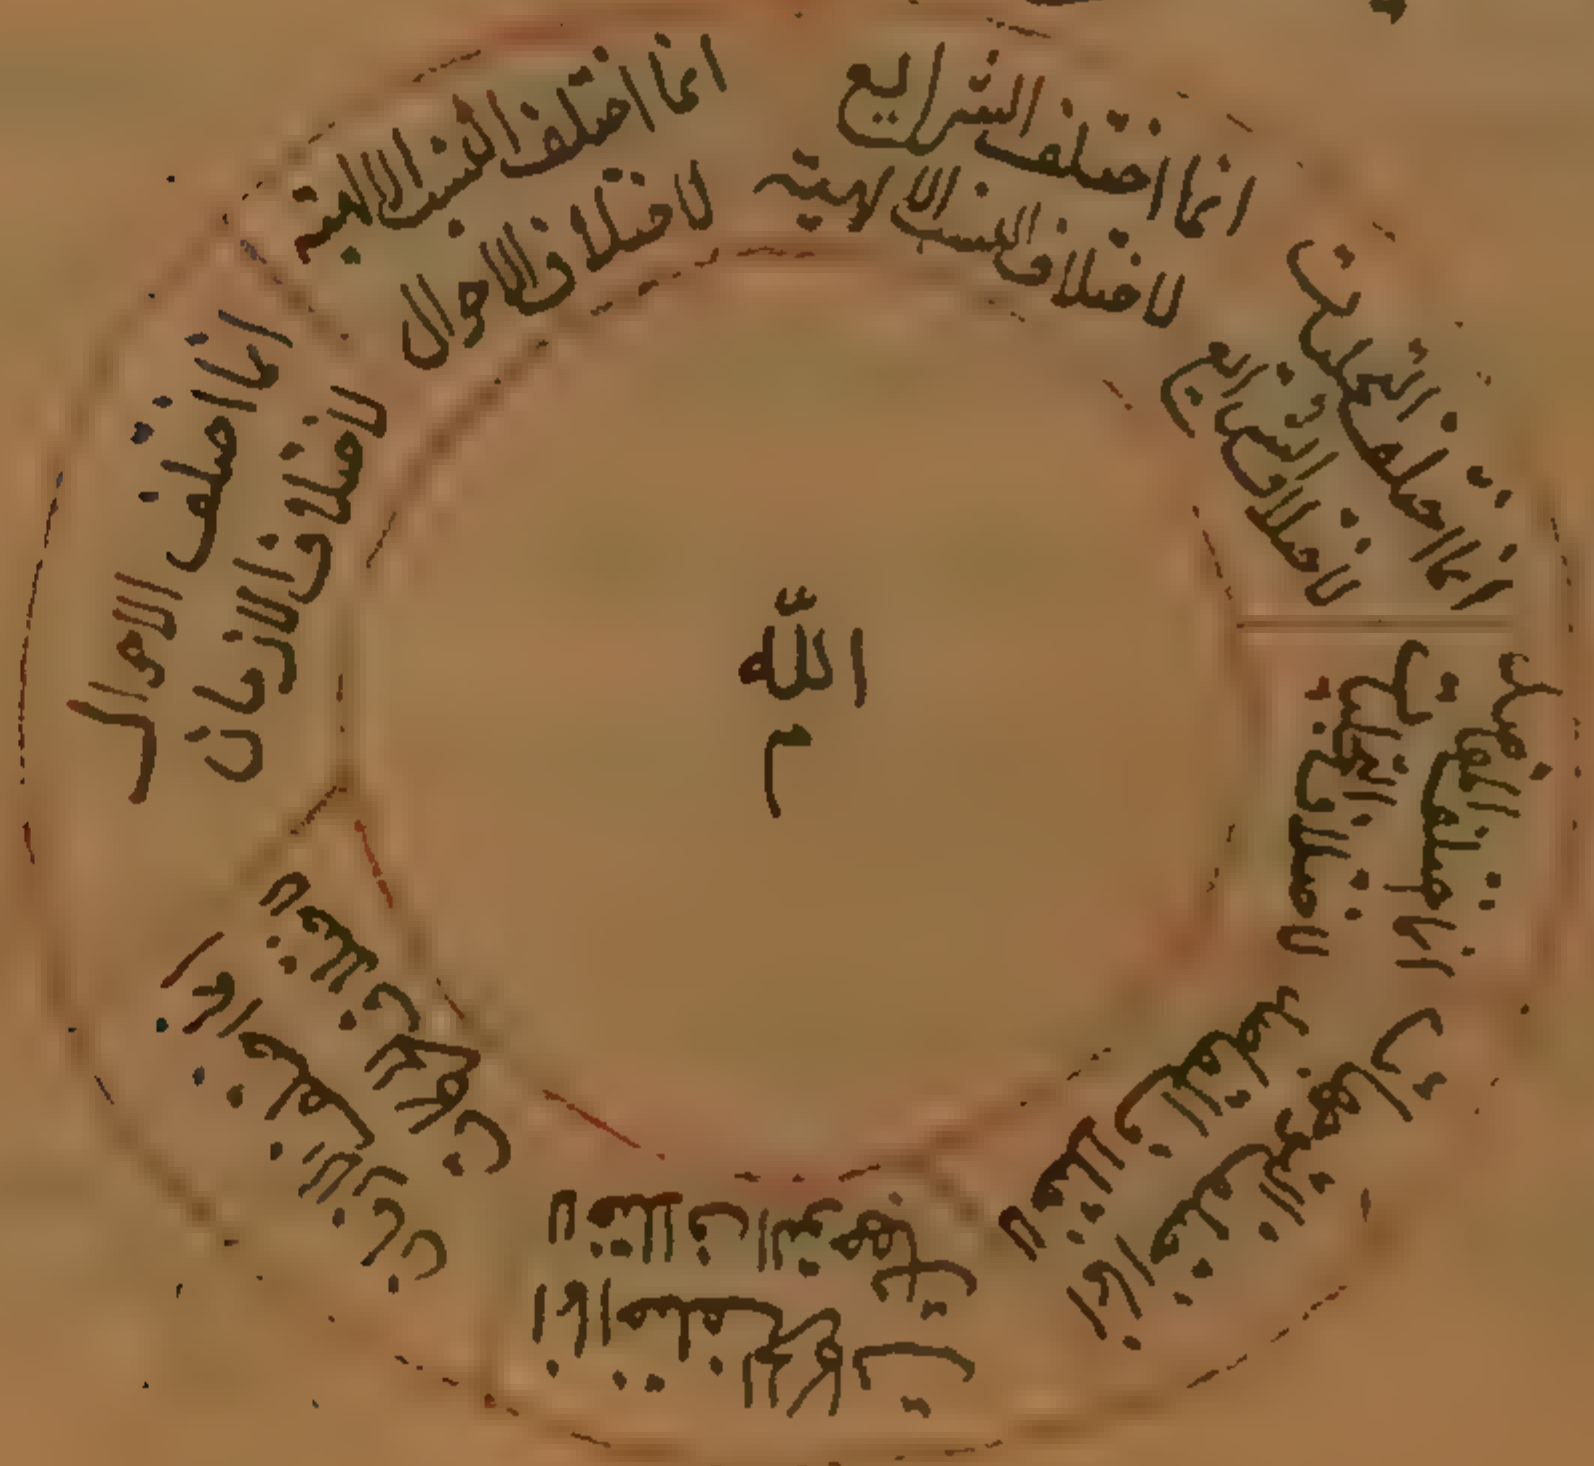 انما اختلفت الشرايع
لاختلاف النسب الالهية
انما اختلفت النسب الالهية
لاختلاف الاحوال
انما اختلفت الاحوال
لاختلاف الازمان
انما اختلفت الازمان
لاختلاف الحركات
انما اختلفت الحركات
لاختلاف التوجهات
انما اختلفت التوجهات
لاختلاف المقاصد
انما اختلفت المقاصد
لاختلاف التجليات
انما اختلفت التجليات
لاختلاف الشرايع
الله
م